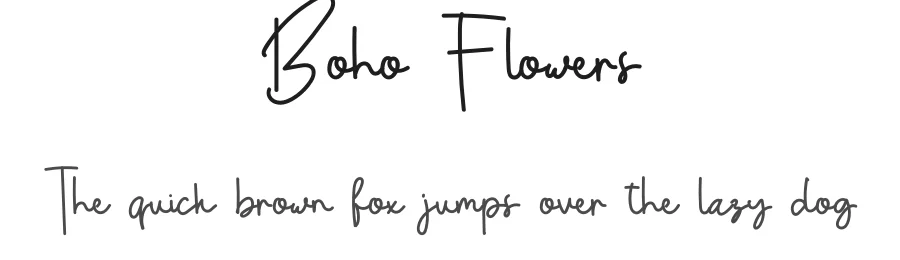 Boho Flowers
The quick brown fox jumps over the lazy dog